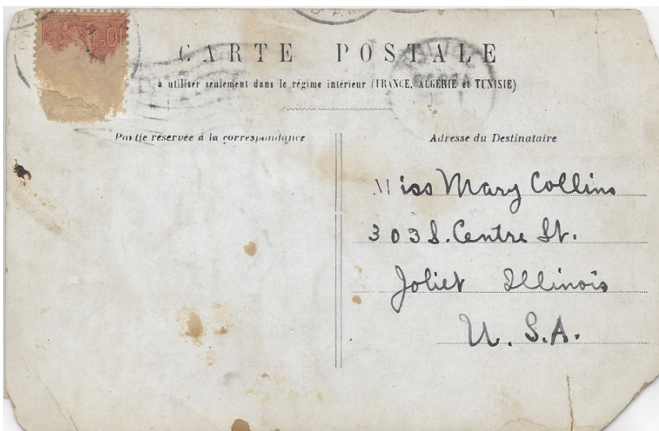 CARTE POSTALE
à utiliser seulement dans le régime intérieur (FRANCE, ALGÉRIE et TUNISIE)
Partie réservée à la correspondance
Adresse du Destinataire
Miss Mary Collins
303 S. Centre St.
Joliet Illinois
U. S. A.